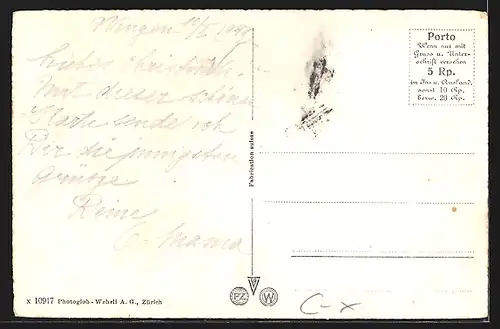 Lieber
Mit dieser schönen
Karte sende ich
Dir die innigsten
Grüsse
Deine
Mama
Fabrication suisse
Porto
Wenn nur mit
Gruss u. Unter-
schrift versehen
5 Rp.
in In- u. Ausland,
sonst 10 Rp.
bezw. 20 Rp.
X 10917 Photoglob-Wehrli A. G., Zürich
PZ W
C-X